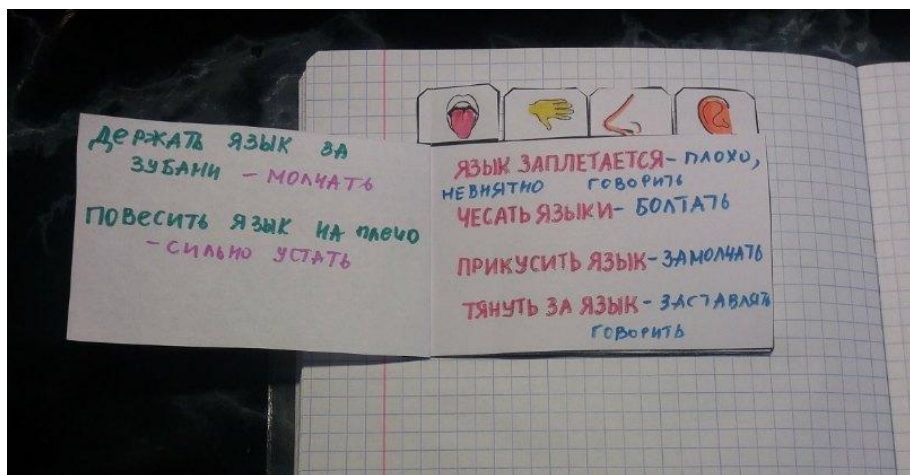 ДЕРЖАТЬ ЯЗЫК ЗА
ЗУБАМИ – МОЛЧАТЬ
ПОВЕСИТЬ ЯЗЫК НА ПЛЕЧО
– СИЛЬНО УСТАТЬ
ЯЗЫК ЗАПЛЕТАЕТСЯ – ПЛОХО,
НЕВНЯТНО ГОВОРИТЬ
ЧЕСАТЬ ЯЗЫКИ – БОЛТАТЬ
ПРИКУСИТЬ ЯЗЫК – ЗАМОЛЧАТЬ
ТЯНУТЬ ЗА ЯЗЫК – ЗАСТАВЛЯТЬ
ГОВОРИТЬ